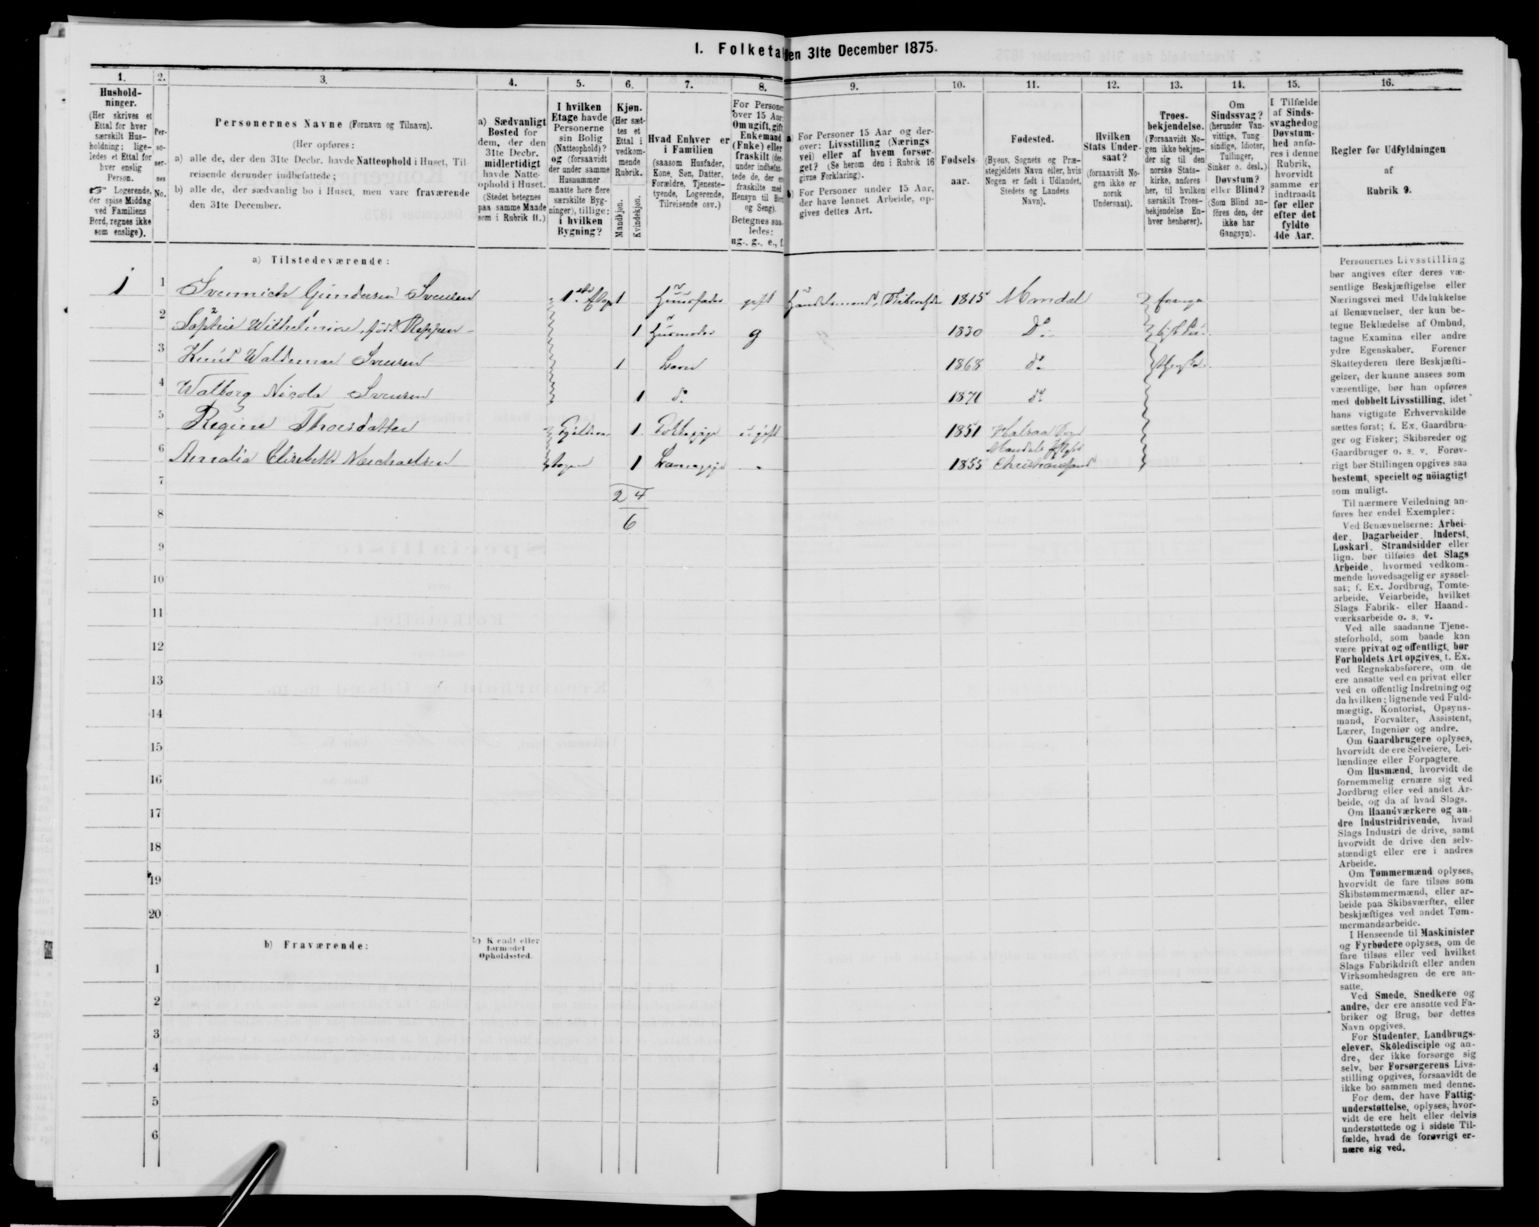 I. Folketal den 31te December 1875.
1. 2. 3. 4. 5. 6. 7. 8. 9. 10. 11. 12. 13. 14. 15. 16.
Hushold-
ninger.
(Her skrives et
Ettal for hver
særskilt Hus-
holdning; lige-
ledes et Ettal for
hver enslig
Person.
Logerende,
der spise Middag
ved Familiens
Bord, regnes ikke
som enslige).
Per-
so-
ner-
nes
No.
Personernes Navne (Fornavn og Tilnavn).
(Her opføres:
a) alle de, der den 31te Decbr. havde Natteophold i Huset, Til-
reisende derunder indbefattede;
b) alle de, der sædvanlig bo i Huset, men vare fraværende
den 31te December.
a) Sædvanligt
Bosted for
dem, der den
31te Decbr.
midlertidigt
havde Natte-
ophold i Huset.
(Stedet betegnes
paa samme Maade
som i Rubrik 11.)
I hvilken
Etage havde
Personerne
sin Bolig
(Natteophold)?
og (forsaavidt
der under samme
Husnummer
maatte høre flere
særskilte Byg-
ninger), tillige:
i hvilken
Bygning?
Kjøn.
(Her sæt-
tes et
Ettal i
vedkom-
mende
Rubrik.
Mandkjøn.
Kvindekjøn.
Hvad Enhver er
i Familien
(saasom Husfader,
Kone, Søn, Datter,
Forældre, Tjeneste-
tyende, Logerende,
Tilreisende osv.)
For Personer
over 15 Aar:
Om ugift, gift,
Enkemand
(Enke) eller
fraskilt (der-
under indbefat-
tede de, der ere
fraskilte med
Hensyn til Bord
og Seng).
Betegnes saa-
ledes:
ug., g., e., f.
a) For Personer 15 Aar og der-
over: Livsstilling (Nærings-
vei) eller af hvem forsør-
get? (Se herom den i Rubrik 16
givne Forklaring).
b) For Personer under 15 Aar,
der have lønnet Arbeide, op-
gives dettes Art.
Fødsels-
aar.
Fødested.
(Byens, Sognets og Præ-
stegjeldets Navn eller, hvis
Nogen er født i Udlandet,
Stedets og Landets
Navn).
Hvilken
Stats Under-
saat?
(forsaavidt No-
gen ikke er
norsk
Undersaat).
Troes-
bekjendelse.
(Forsaavidt No-
gen ikke bekjen-
der sig til den
norske Stats-
kirke, anføres
her, til hvilken
særskilt Troes-
bekjendelse En-
hver henhører).
Om
Sindssvag?
(herunder Van-
vittige, Tung-
sindige, Idioter,
Tullinger,
Sinker o. desl.)
Døvstum?
eller Blind?
(Som Blind an-
føres den, der
ikke har
Gangsyn).
I Tilfælde
af Sinds-
svaghed og
Døvstum-
hed anfø-
res i denne
Rubrik,
hvorvidt
samme er
indtraadt
før eller
efter det
fyldte
4de Aar.
Regler for Udfyldningen
af
Rubrik 9.
a) Tilstedeværende:
1 1 Svennich Gundersen Svensen 1 Huusfader gift 1815 Mandal
2 Sophie Wilhelmine, født Reppen 1 Huusmoder g 1830 Do
3 Knud Waldemar Svensen 1 Barn 1868 do
4 Walborg Nicola Svensen 1 do 1871 do
5 Regine Thorsdatter 1 ugift 1851
Mandals
6 Amalia Elisabeth Michaelsen 1 1855 Christiansand
7 2 4
8 6
9
10
11
12
13
14
15
16
17
18
19
20
b) Fraværende:
b) Kjendt eller
formodet
Opholdssted.
1
2
3
4
5
6
Personernes Livsstilling
bør angives efter deres væ-
sentlige Beskjæftigelse eller
Næringsvei med Udelukkelse
af Benævnelser, der kun be-
tegne Beklædelse af Ombud,
tagne Examina eller andre
ydre Egenskaber. Forener
Skatteyderen flere Beskjæfti-
gelser, der kunne ansees som
væsentlige, bør han opføres
med dobbelt Livsstilling, idet
hans vigtigste Erhvervskilde
sættes først; f. Ex. Gaardbru-
ger og Fisker; Skibsreder og
Gaardbruger o. s. v. Forøv-
rigt bør Stillingen opgives saa
bestemt, specielt og nöiagtigt
som muligt.
Til nærmere Veiledning an-
føres her endel Exempler:
Ved Benævnelserne: Arbei-
der, Dagarbeider, Inderst,
Løskarl, Strandsidder eller
lign. bør tilføies det Slags
Arbeide, hvormed vedkom-
mende hovedsagelig er syssel-
sat; f. Ex. Jordbrug, Tomte-
arbeide, Veiarbeide, hvilket
Slags Fabrik- eller Haand-
værksarbeide o. s. v.
Ved alle saadanne Tjene-
steforhold, som baade kan
være privat og offentligt, bør
Forholdets Art opgives, f. Ex.
ved Regnskabsførere, om de
ere ansatte ved en privat eller
ved en offentlig Indretning og
da hvilken; lignende ved Fuld-
mægtig, Kontorist, Opsyns-
mand, Forvalter, Assistent,
Lærer, Ingeniør og andre.
Om Gaardbrugere oplyses,
hvorvidt de ere Selveiere, Lei-
lændinge eller Forpagtere.
Om Husmænd, hvorvidt de
fornemmelig ernære sig ved
Jordbrug eller ved andet Ar-
beide, og da af hvad Slags.
Om Haandværkere og an-
dre Industridrivende, hvad
Slags Industri de drive, samt
hvorvidt de drive den selv-
stændigt eller ere i andres
Arbeide.
Om Tømmermænd oplyses,
hvorvidt de fare tilsøs som
Skibstømmermænd, eller ar-
beide paa Skibsværfter, eller
beskjæftiges ved andet Tøm-
mermandsarbeide.
I Henseende til Maskinister
og Fyrbødere oplyses, om de
fare tilsøs eller ved hvilket
Slags Fabrikdrift eller anden
Virksomhedsgren de ere an-
satte.
Ved Smede, Snedkere og
andre, der ere ansatte ved Fa-
briker og Brug, bør dettes
Navn opgives.
For Studenter, Landbrugs-
elever, Skoledisciple og an-
dre, der ikke forsørge sig
selv, bør Forsørgerens Livs-
stilling opgives, forsaavidt de
ikke bo sammen med denne.
For dem, der have Fattig-
understøttelse, oplyses, hvor-
vidt de ere helt eller delvis
understøttede og i sidste Til-
fælde, hvad de forøvrigt er-
nære sig ved.